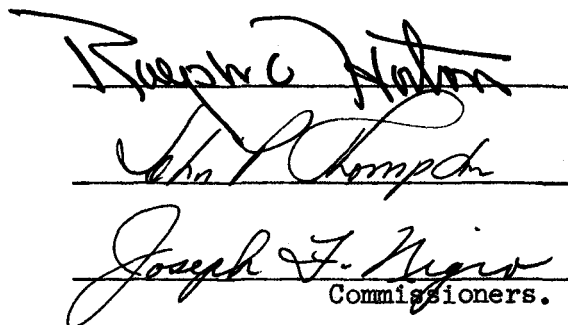 Ralph C Horton
John P Thompson
Joseph F. Nigro
Commissioners.